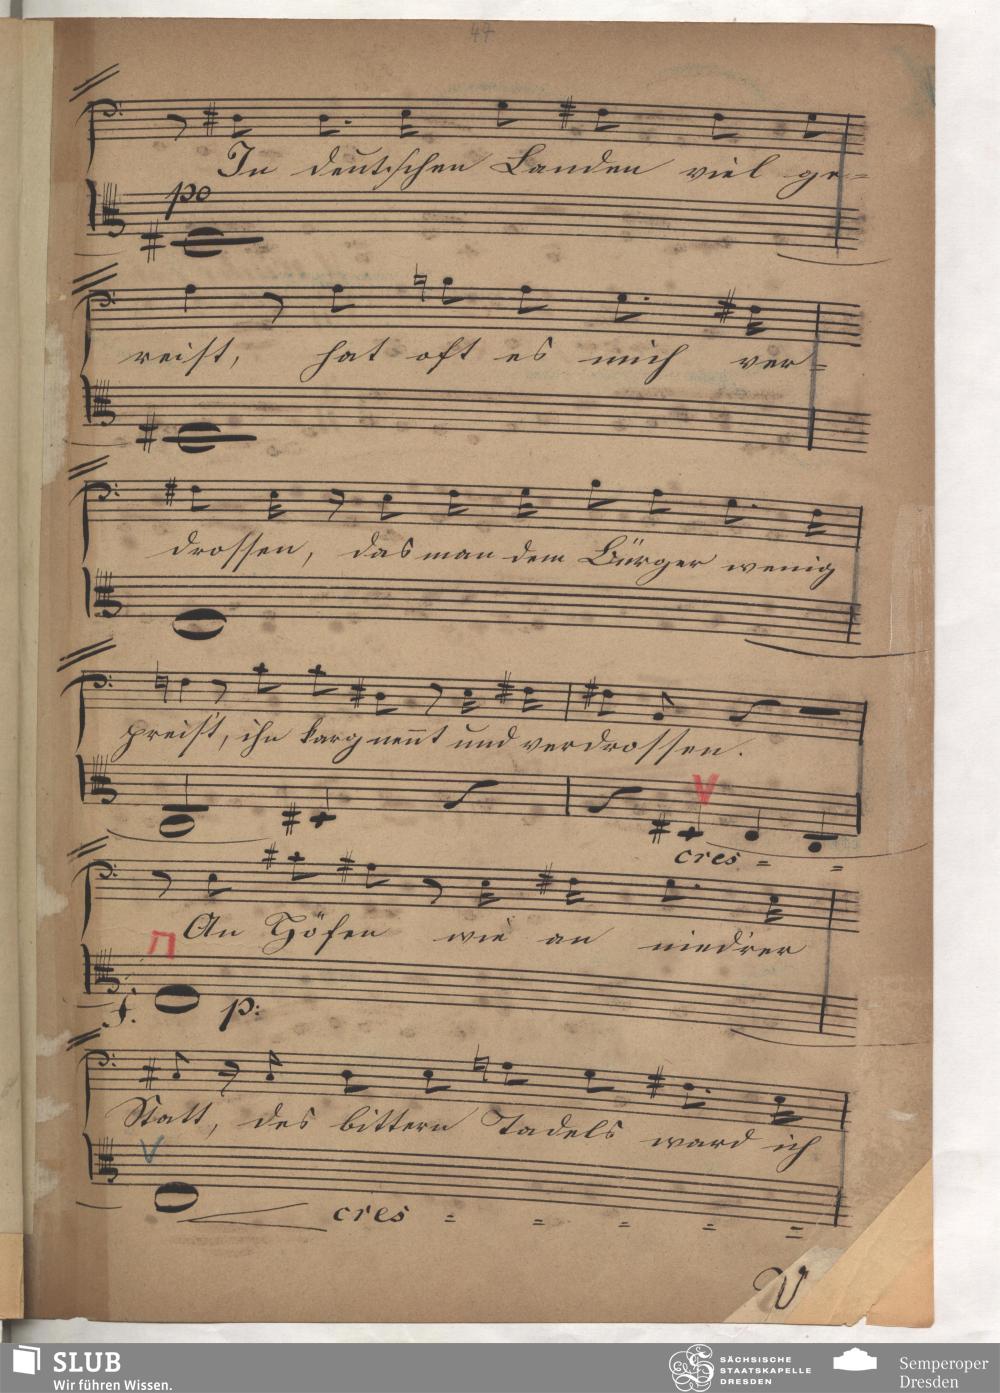 47
In deutschen Landen viel ge=
po
reist, hat oft es mich ver=
drossen, das man dem Bürger wenig
preis't, ihn karg nen̄t und verdrossen.
V
cres = =
An Höfen wie an nied'rer
f. p:
Statt, des bittern Tadels ward ich
V
cres = = = = =
V
SLUB
Wir führen Wissen.
SÄCHSISCHE
STAATSKAPELLE
DRESDEN
Semperoper
Dresden